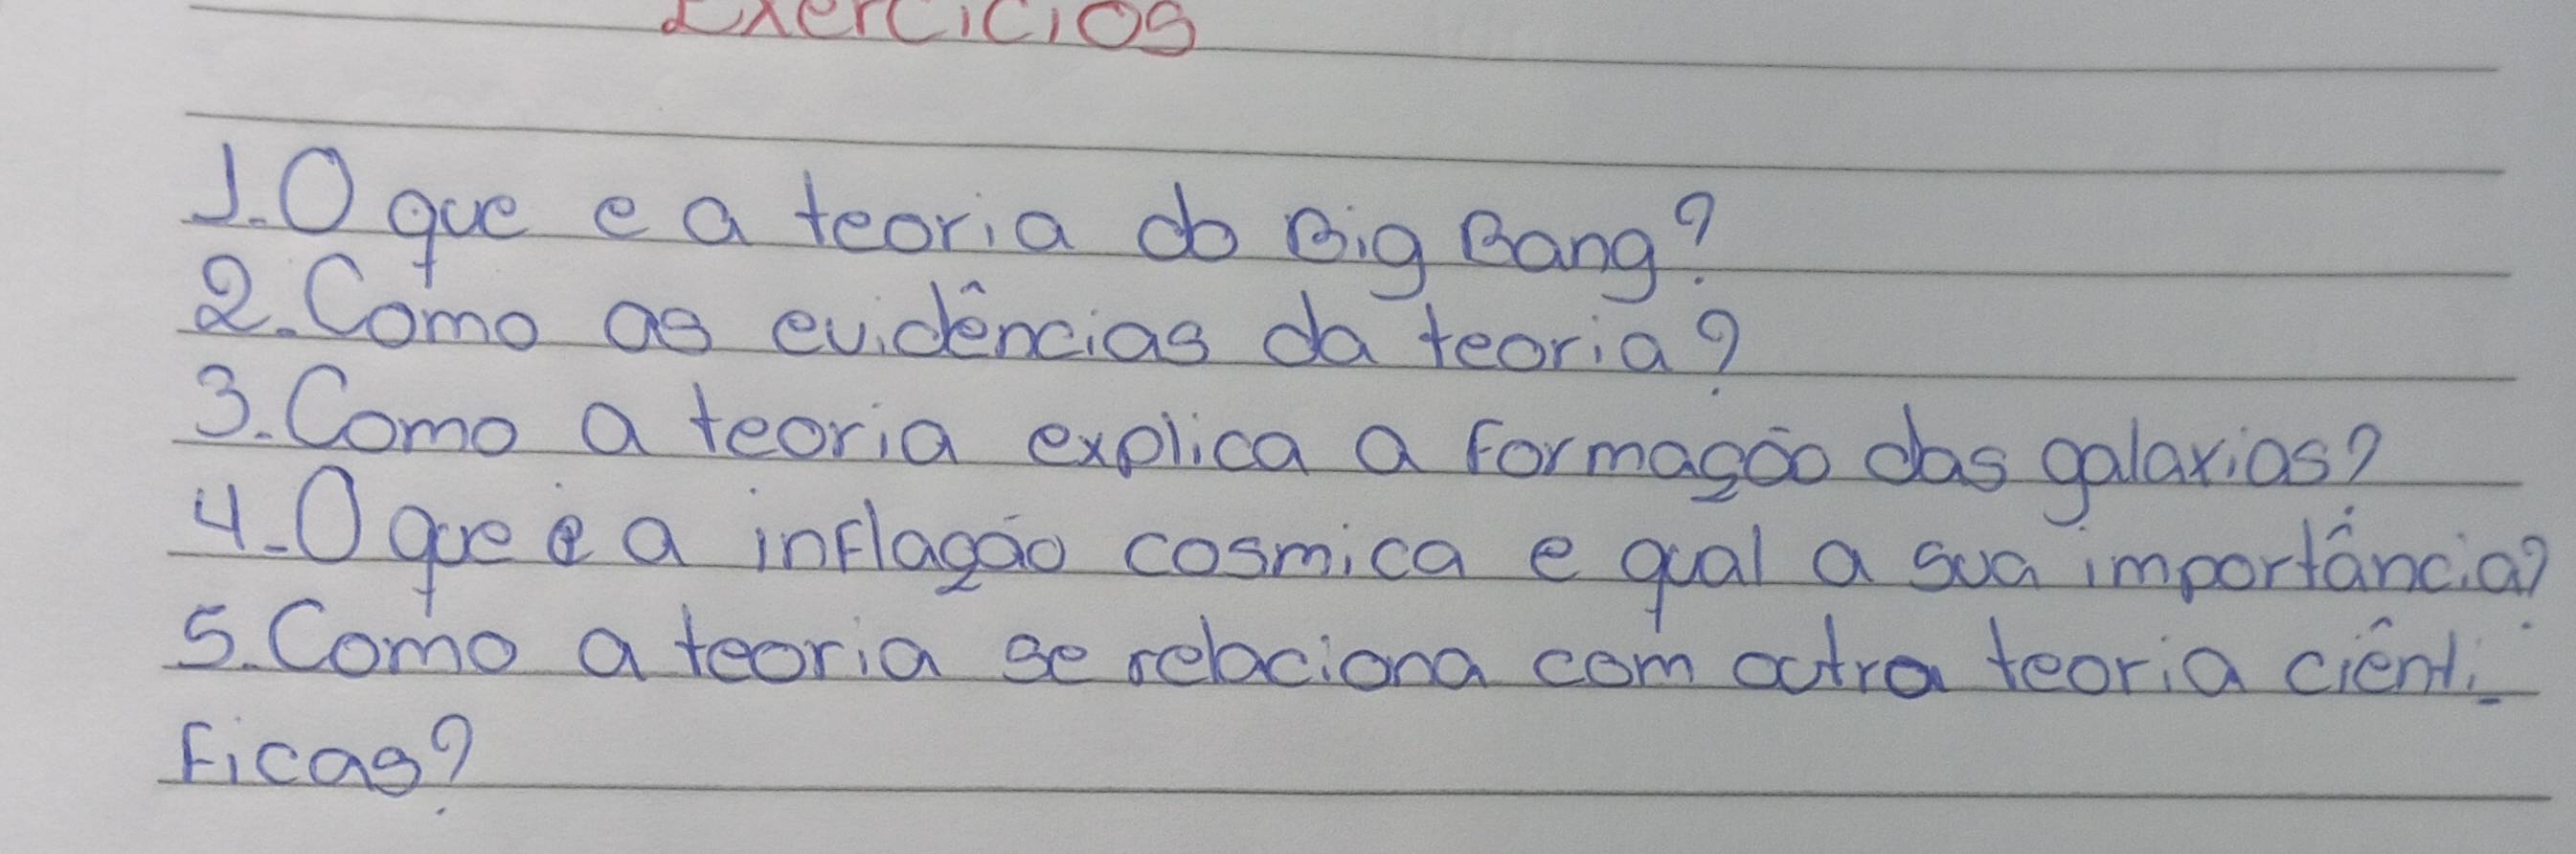 Exercicios
1. O que e a teoria do Big Bang?
2. Como as evidências da teoria?
3. Como a teoria explica a formação das galaxias?
4. O que é a inflação cosmica e qual a sua importância?
5. Como a teoria se relaciona com outra teoria ciênti-
ficas?